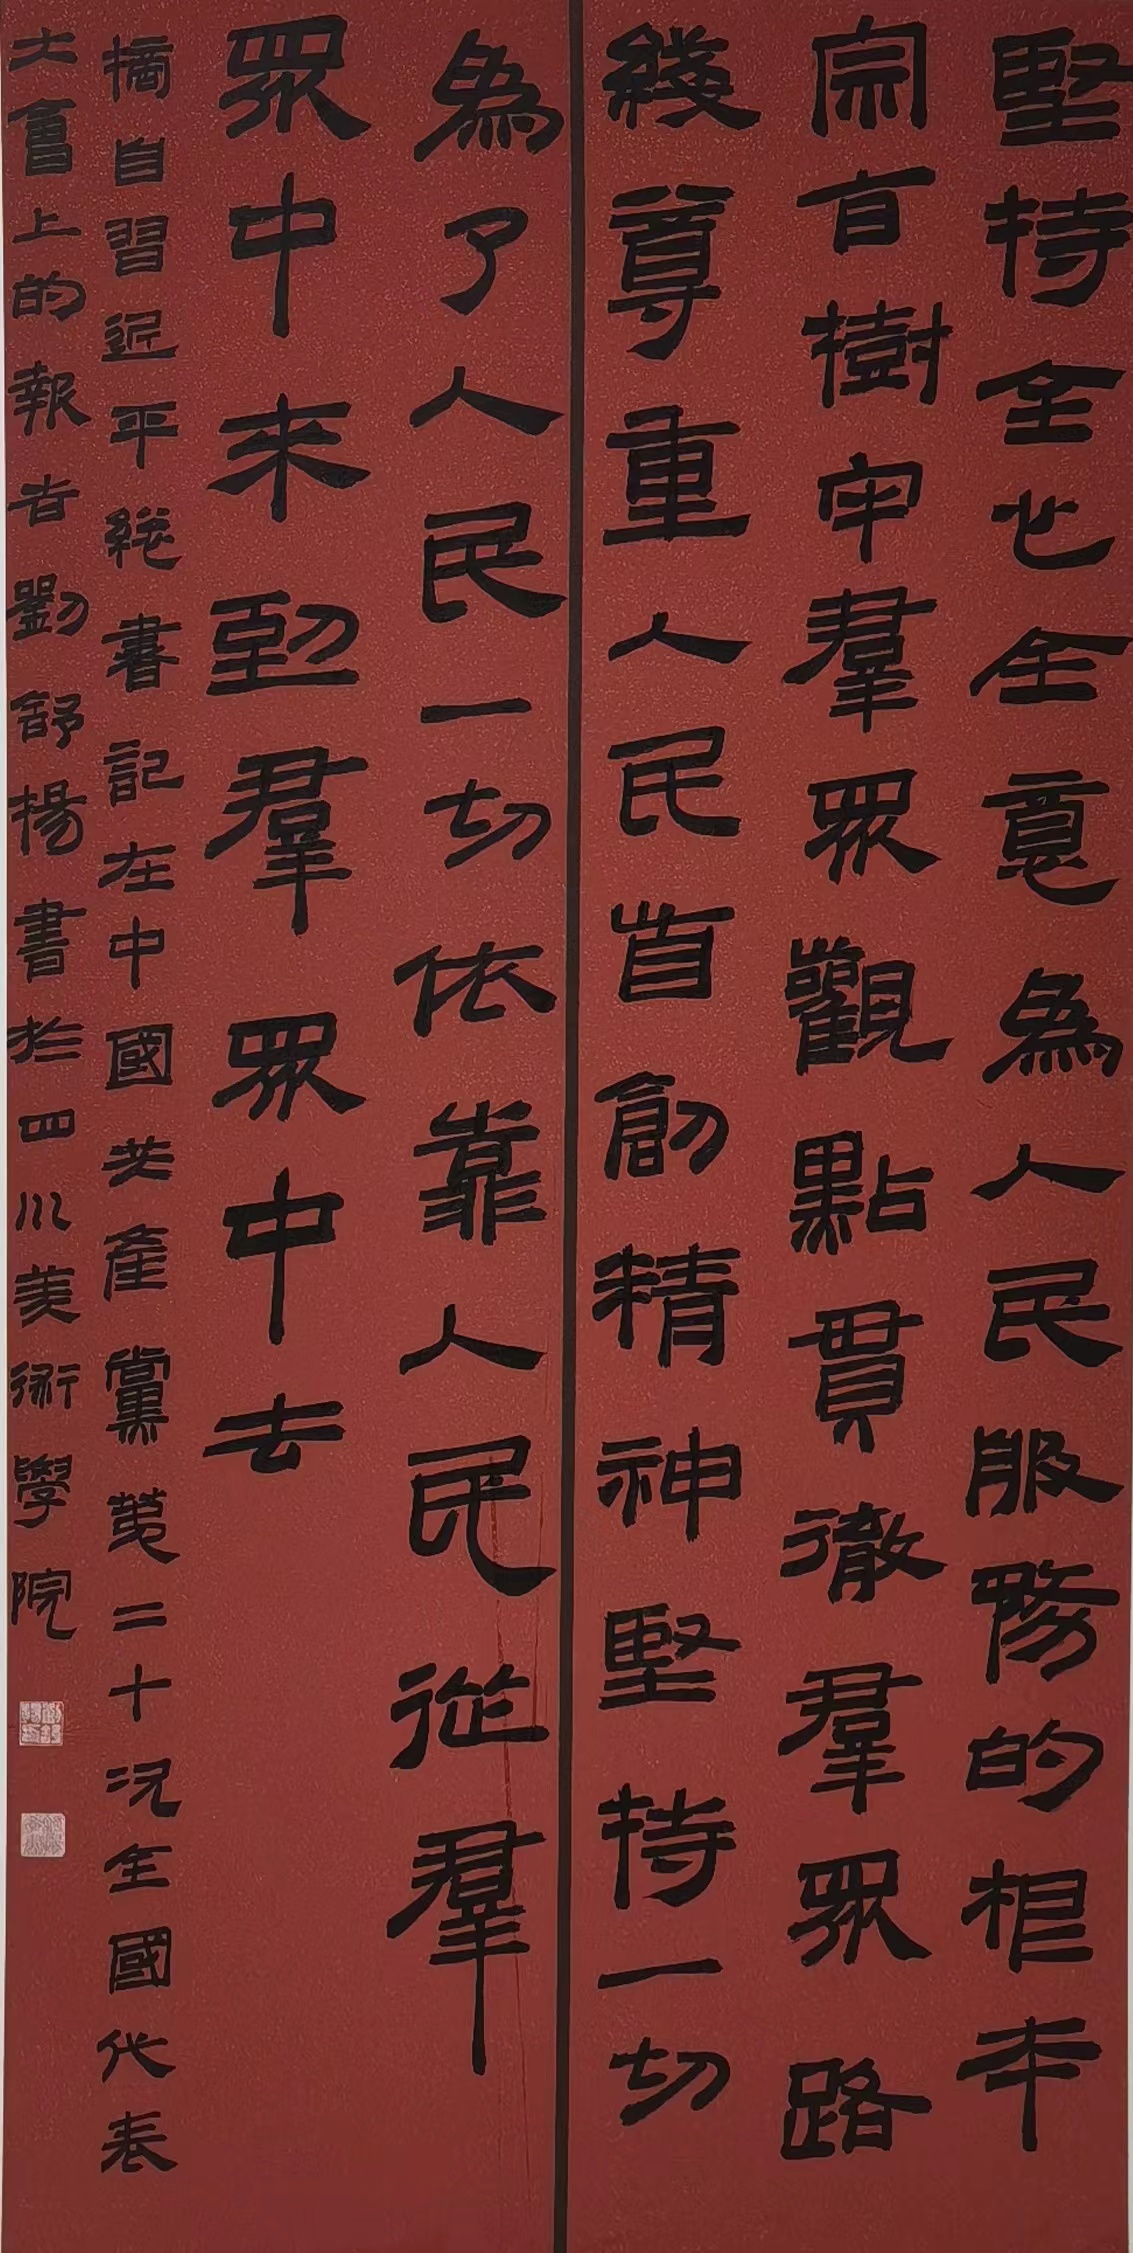 堅持全心全意為人民服務的根本
宗旨樹牢羣眾觀點貫徹羣眾路
綫尊重人民首創精神堅持一切
為了人民一切依靠人民從羣
眾中來到羣眾中去
摘自習近平總書記在中國共產黨第二十次全國代表
大會上的報告劉舒楊書於四川美術學院